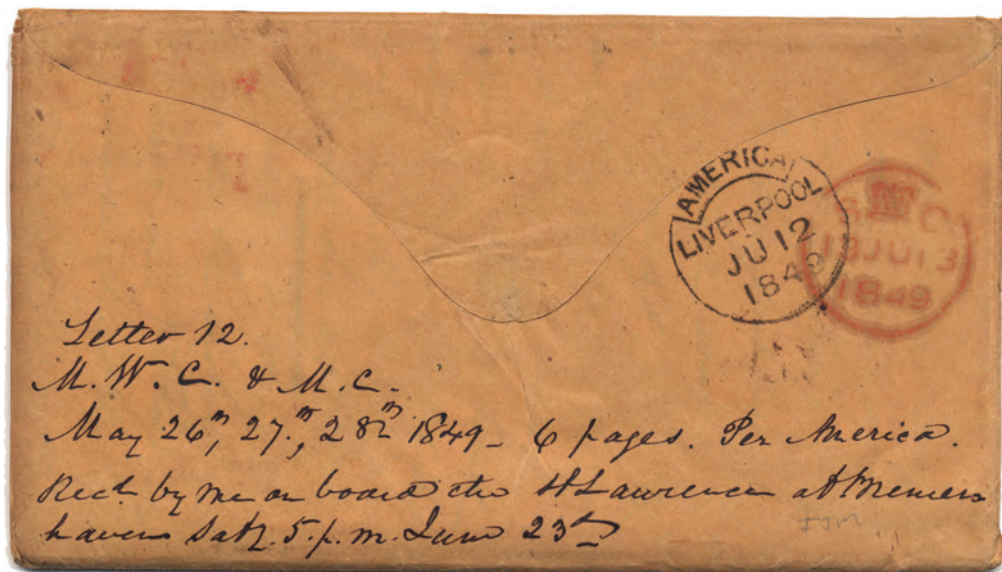 AMERICA
LIVERPOOL
JU 12
1849
13 JU 13
1849
Letter 12.
M. W. C. & M. C.
May 26th, 27th, 28th 1849 - 6 pages. Per America.
Recd by me on board the St Lawrence at Bremer
haven Saty. 5. p. m. June 23d